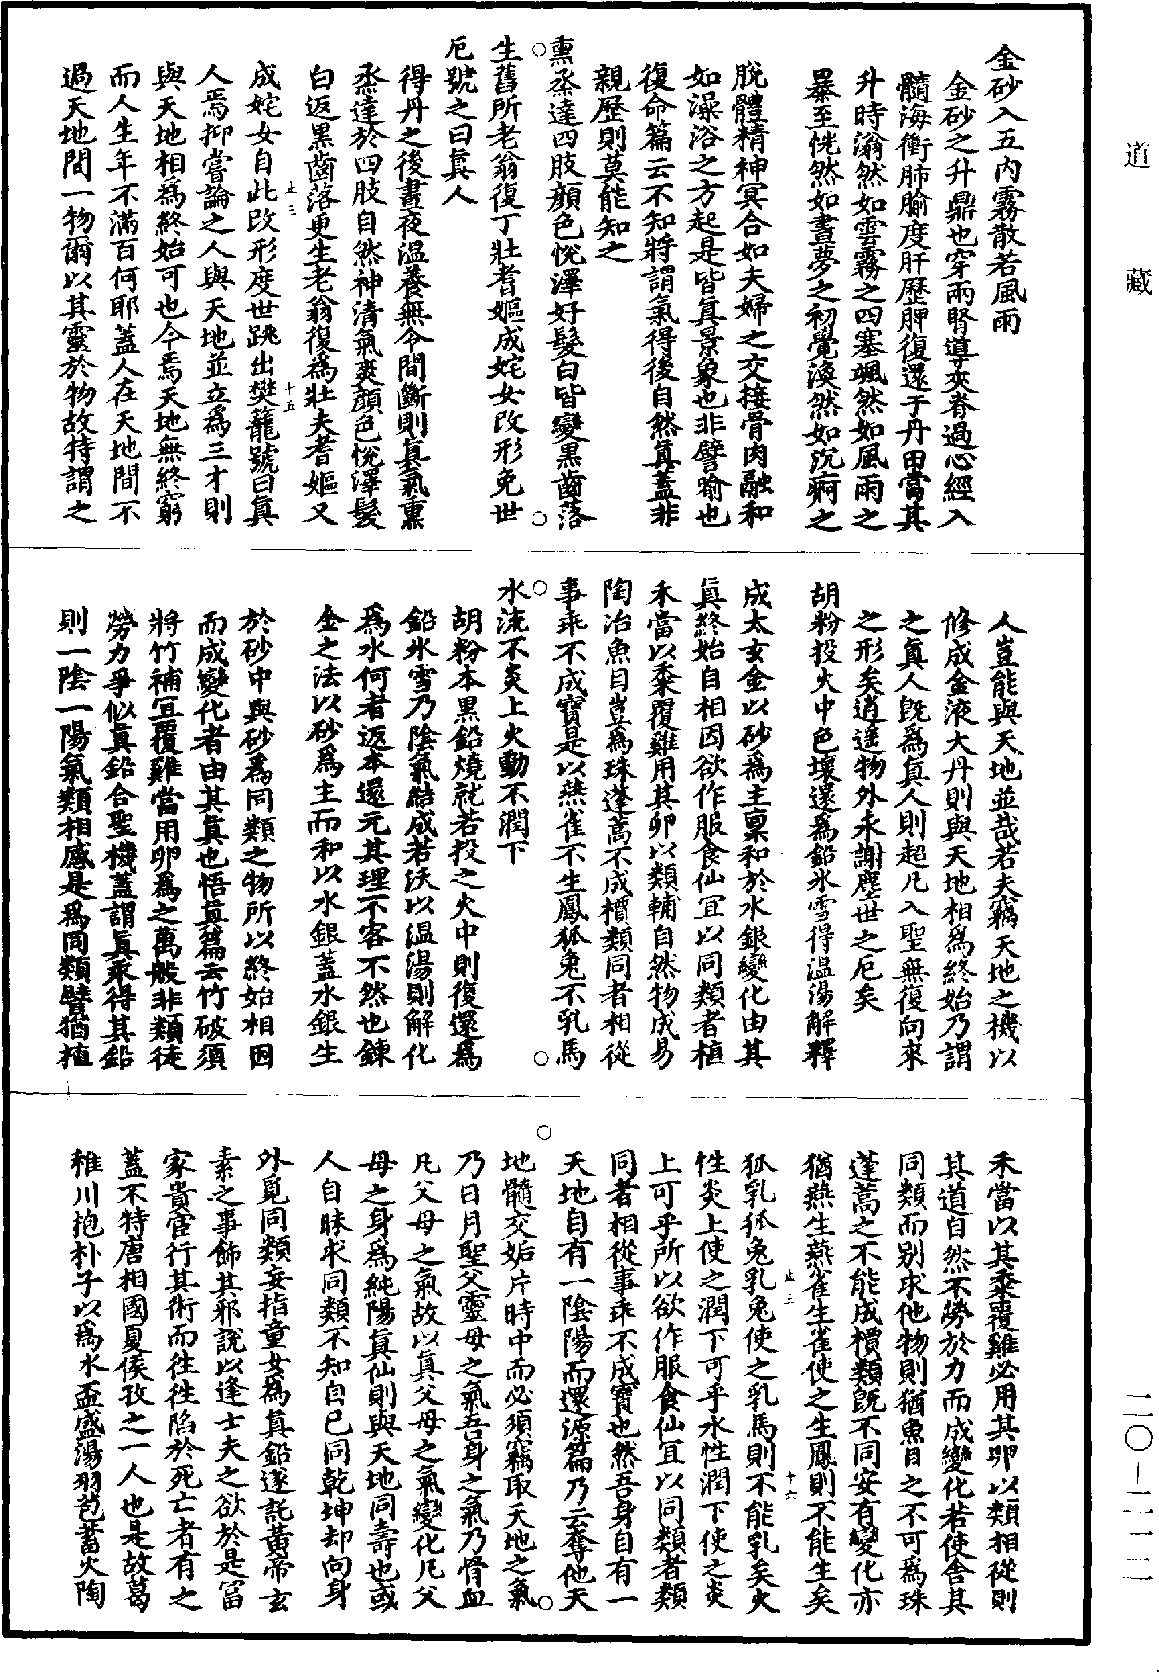 道藏
金砂入五內霧散若風雨
金砂之升鼎也穿兩腎導夾脊過心經入
髓海衝肺腧度肝歷脾復還于丹田當其
升時滃然如雲霧之四塞颯然如風雨之
暴至恍然如晝夢之初覺渙然如沉痾之
脫體精神冥合如夫婦之交接骨肉融和
如澡浴之方起是皆眞景象也非譬喻也
復命篇云不知將謂氣得後自然眞蓋非
親歷則莫能知之
熏蒸達四肢顏色悅澤好髮白皆變黑齒落
生舊所老翁復丁壯耆嫗成姹女改形免世
厄號之曰眞人
得丹之後晝夜溫養無令間斷則眞氣熏
蒸達於四肢自然神清氣爽顏色悅澤髮
白返黑齒落更生老翁復爲壯夫耆嫗又
止三
十五
成姹女自此改形度世跳出樊籠號曰眞
人焉抑嘗論之人與天地並立爲三才則
與天地相爲終始可也今焉天地無終窮
而人生年不滿百何耶蓋人在天地間不
過天地間一物爾以其靈於物故特謂之
人豈能與天地並哉若夫竊天地之機以
修成金液大丹則與天地相爲終始乃謂
之眞人旣爲眞人則超凡入聖無復向來
之形矣逍遙物外永謝塵世之厄矣
胡粉投火中色壞還爲鉛氷雪得溫湯解釋
成太玄金以砂爲主稟和於水銀變化由其
眞終始自相因欲作服食仙宜以同類者植
禾當以黍覆雞用其卵以類輔自然物成易
陶冶魚目豈爲珠蓬蒿不成檟類同者相從
事乖不成寶是以燕雀不生鳳狐兔不乳馬
水流不炎上火動不潤下
胡粉本黑鉛燒就若投之火中則復還爲
鉛氷雪乃陰氣結成若沃以溫湯則解化
爲水何者返本還元其理不容不然也鍊
金之法以砂爲主而和以水銀蓋水銀生
於砂中與砂爲同類之物所以終始相因
而成變化者由其眞也悟眞篇云竹破須
將竹補宜覆雞當用卵爲之萬般非類徒
勞力爭似眞鉛合聖機蓋謂眞汞得其鉛
則一陰一陽氣類相感是爲同類譬猶植
禾當以其黍覆雞必用其卵以類相從則
其道自然不勞於力而成變化若使舍其
同類而別求他物則猶魚目之不可爲珠
蓬蒿之不能成檟類旣不同安有變化亦
猶燕生燕雀生雀使之生鳳則不能生矣
止三
十六
狐乳狐兔乳兔使之乳馬則不能乳矣火
性炎上使之潤下可乎水性潤下使之炎
上可乎所以欲作服食仙宜以同類者類
同者相從事乖不成寶也然吾身自有一
天地自有一陰陽而還源篇乃云奪他天
地髓交姤片時中而必須竊取天地之氣
乃日月聖父靈母之氣吾身之氣乃骨血
凡父母之氣故以眞父母之氣變化凡父
母之身爲純陽眞仙則與天地同壽也或
人自昧求同類不知自己同乾坤却向身
外覓同類妄指童女爲眞鉛遂託黃帝玄
素之事飾其邪說以逢士夫之欲於是富
家貴宦行其術而往往陷於死亡者有之
蓋不特唐相國夏侯孜之一人也是故葛
稚川抱朴子以爲水盃盛湯羽苞蓄火陶
二〇－二一二